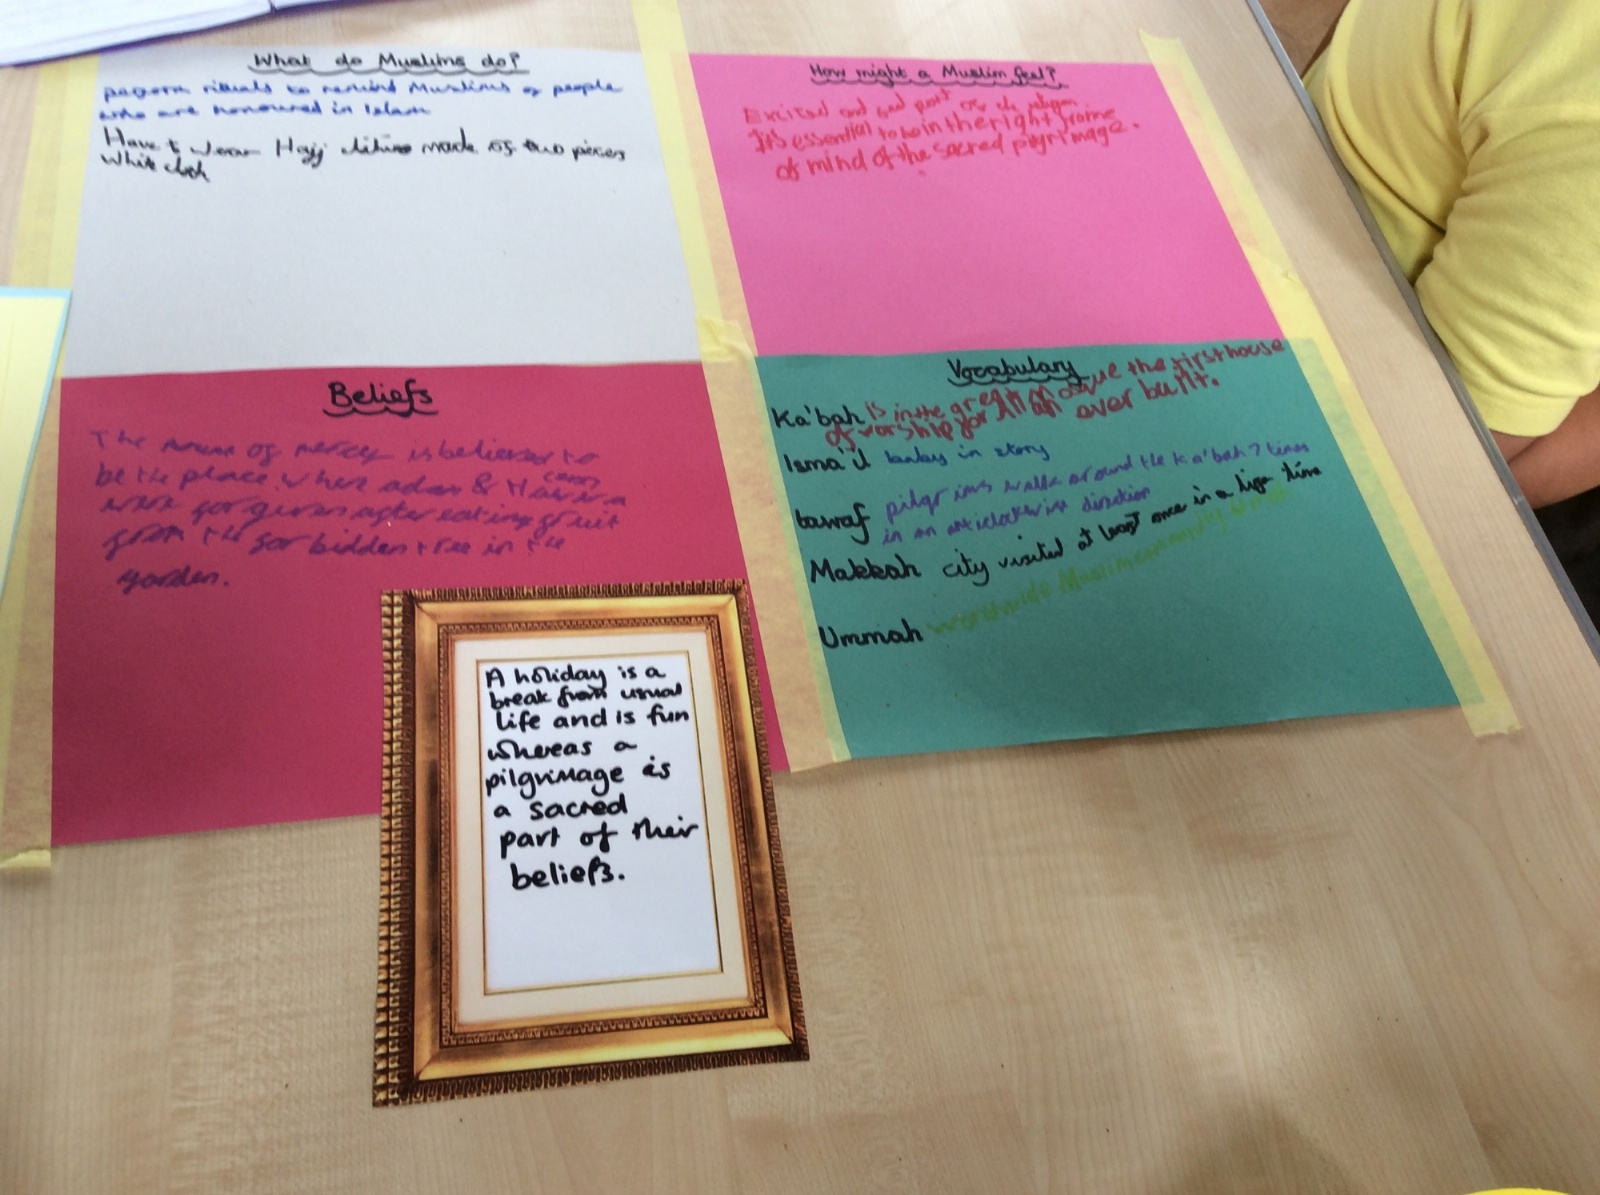 What do Muslims do?
perform rituals to remind Muslims of people
who are honoured in Islam
Have to wear Hajj clothing made of two pieces
white cloth
How might a Muslim feel?
Excited and part of religion
It's essential to be in the right frame
of mind of the sacred pilgrimage.
Beliefs
The mount of mercy is believed to
be the place when adam &
were forgiven after eating fruit
from the forbidden tree in the
garden.
Vocabulary
Ka'bah is in the great mosque the first house
of worship for Allah ever built.
Isma'il baby in story
tawaf pilgrims walk around the Ka'bah 7 times
in an anticlockwise direction
Makkah city visited at least once in a life time
Ummah worldwide Muslim community
A holiday is a
break from usual
life and is fun
whereas a
pilgrimage is
a sacred
part of their
beliefs.